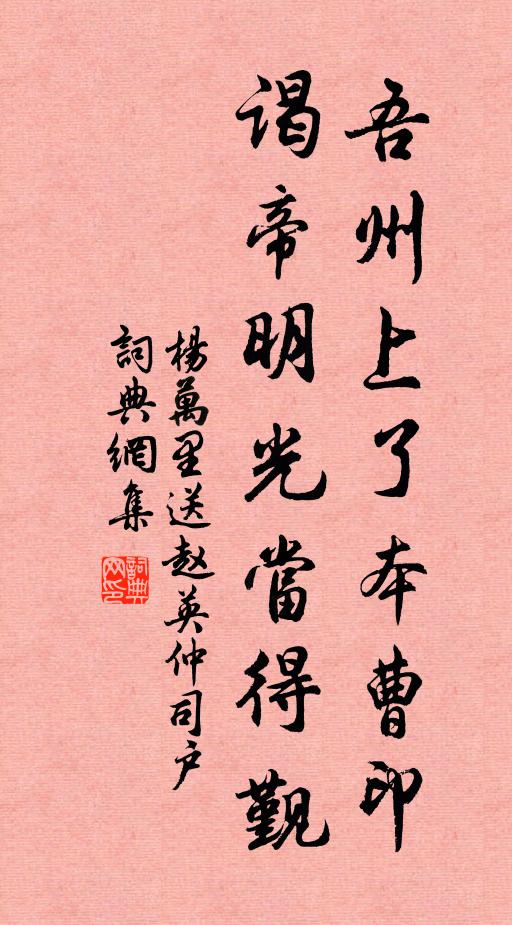 吾州上了本曹印
谒帝明光當得觐
楊萬里送赵英仲司户
詞典網集
詞典网印